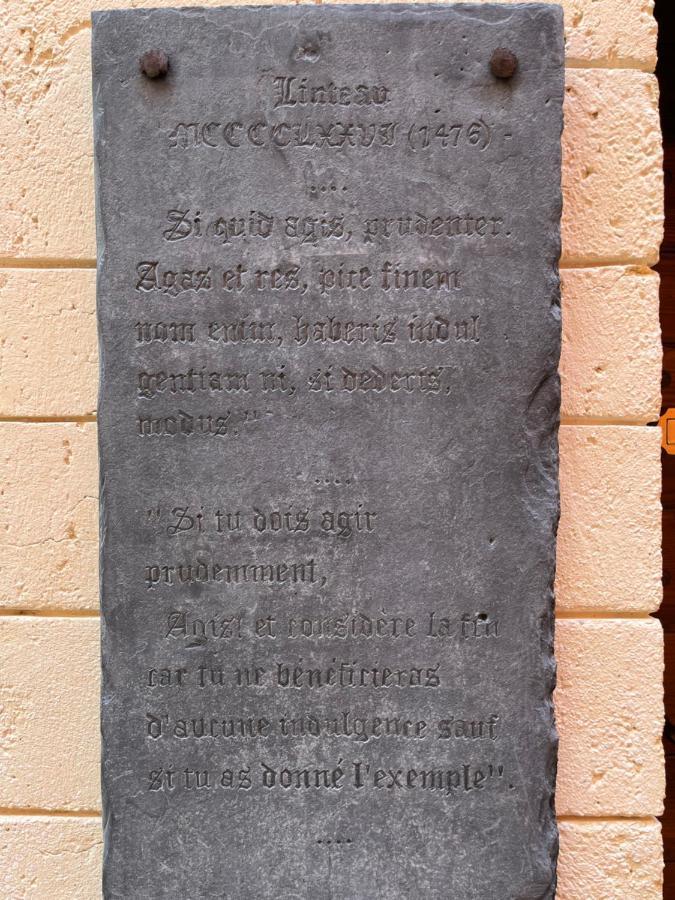 Linteau
MCCCCLXXVI (1476) -
....
Si quid agis, prudenter.
Agas et res, pice finem
nom enim, haberis indul
gentiam ni, si dederis,
modus."
....
"Si tu dois agir
prudemment,
Agist et considère la fin
car tu ne bénéficieras
d'aucune indulgence sauf
si tu as donné l'exemple".
....